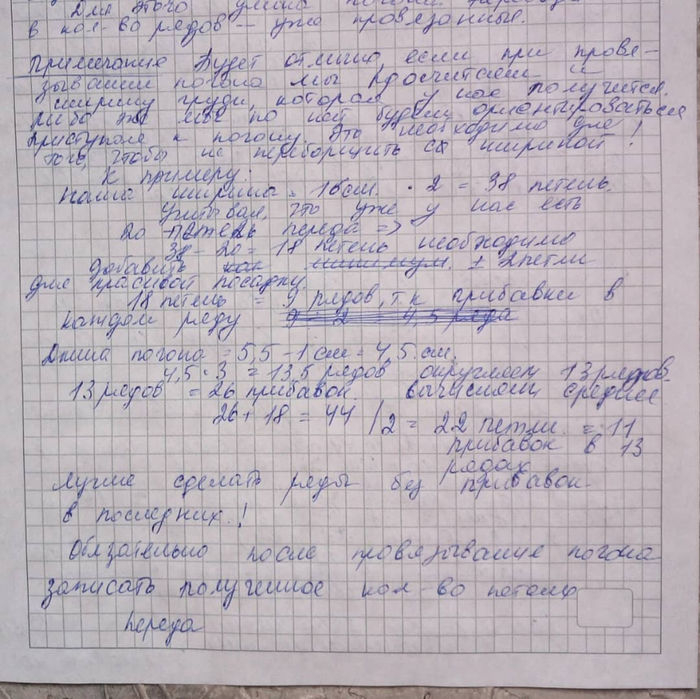 Для этого длина погона переводи
в кол-во рядов – уже провязанные.
Примечание Будет отлично, если при провя-
зывании погона мы просчитаем и
ширину груди, которая у нас получится.
либо по ней будем ориентироваться
приступая к погону. Это необходимо для
того, чтобы не переборщить с шириной!
К примеру:
наша ширина = 16см. · 2 = 38 петель.
Учитывая, что уже у нас есть
20 петель переда =>
38 - 20 = 18 петель необходимо
добавить как минимум. ± 2 петли
для красивой посадки.
18 петель = 9 рядов, т.к прибавки в
каждом ряду 9 · 2 4,5 ряда
Длина погона = 5,5 - 1 см = 4,5 см.
4,5 · 3 = 13,5 рядов округляем 13 рядов.
13 рядов = 26 прибавок. вычисляем среднее
26 + 18 = 44 / 2 = 22 петли. = 11
прибавок в 13
рядах
Лучше сделать ряды без прибавок
в последних.!
Обязательно после провязывание погона
записать полученное кол-во петель
переда